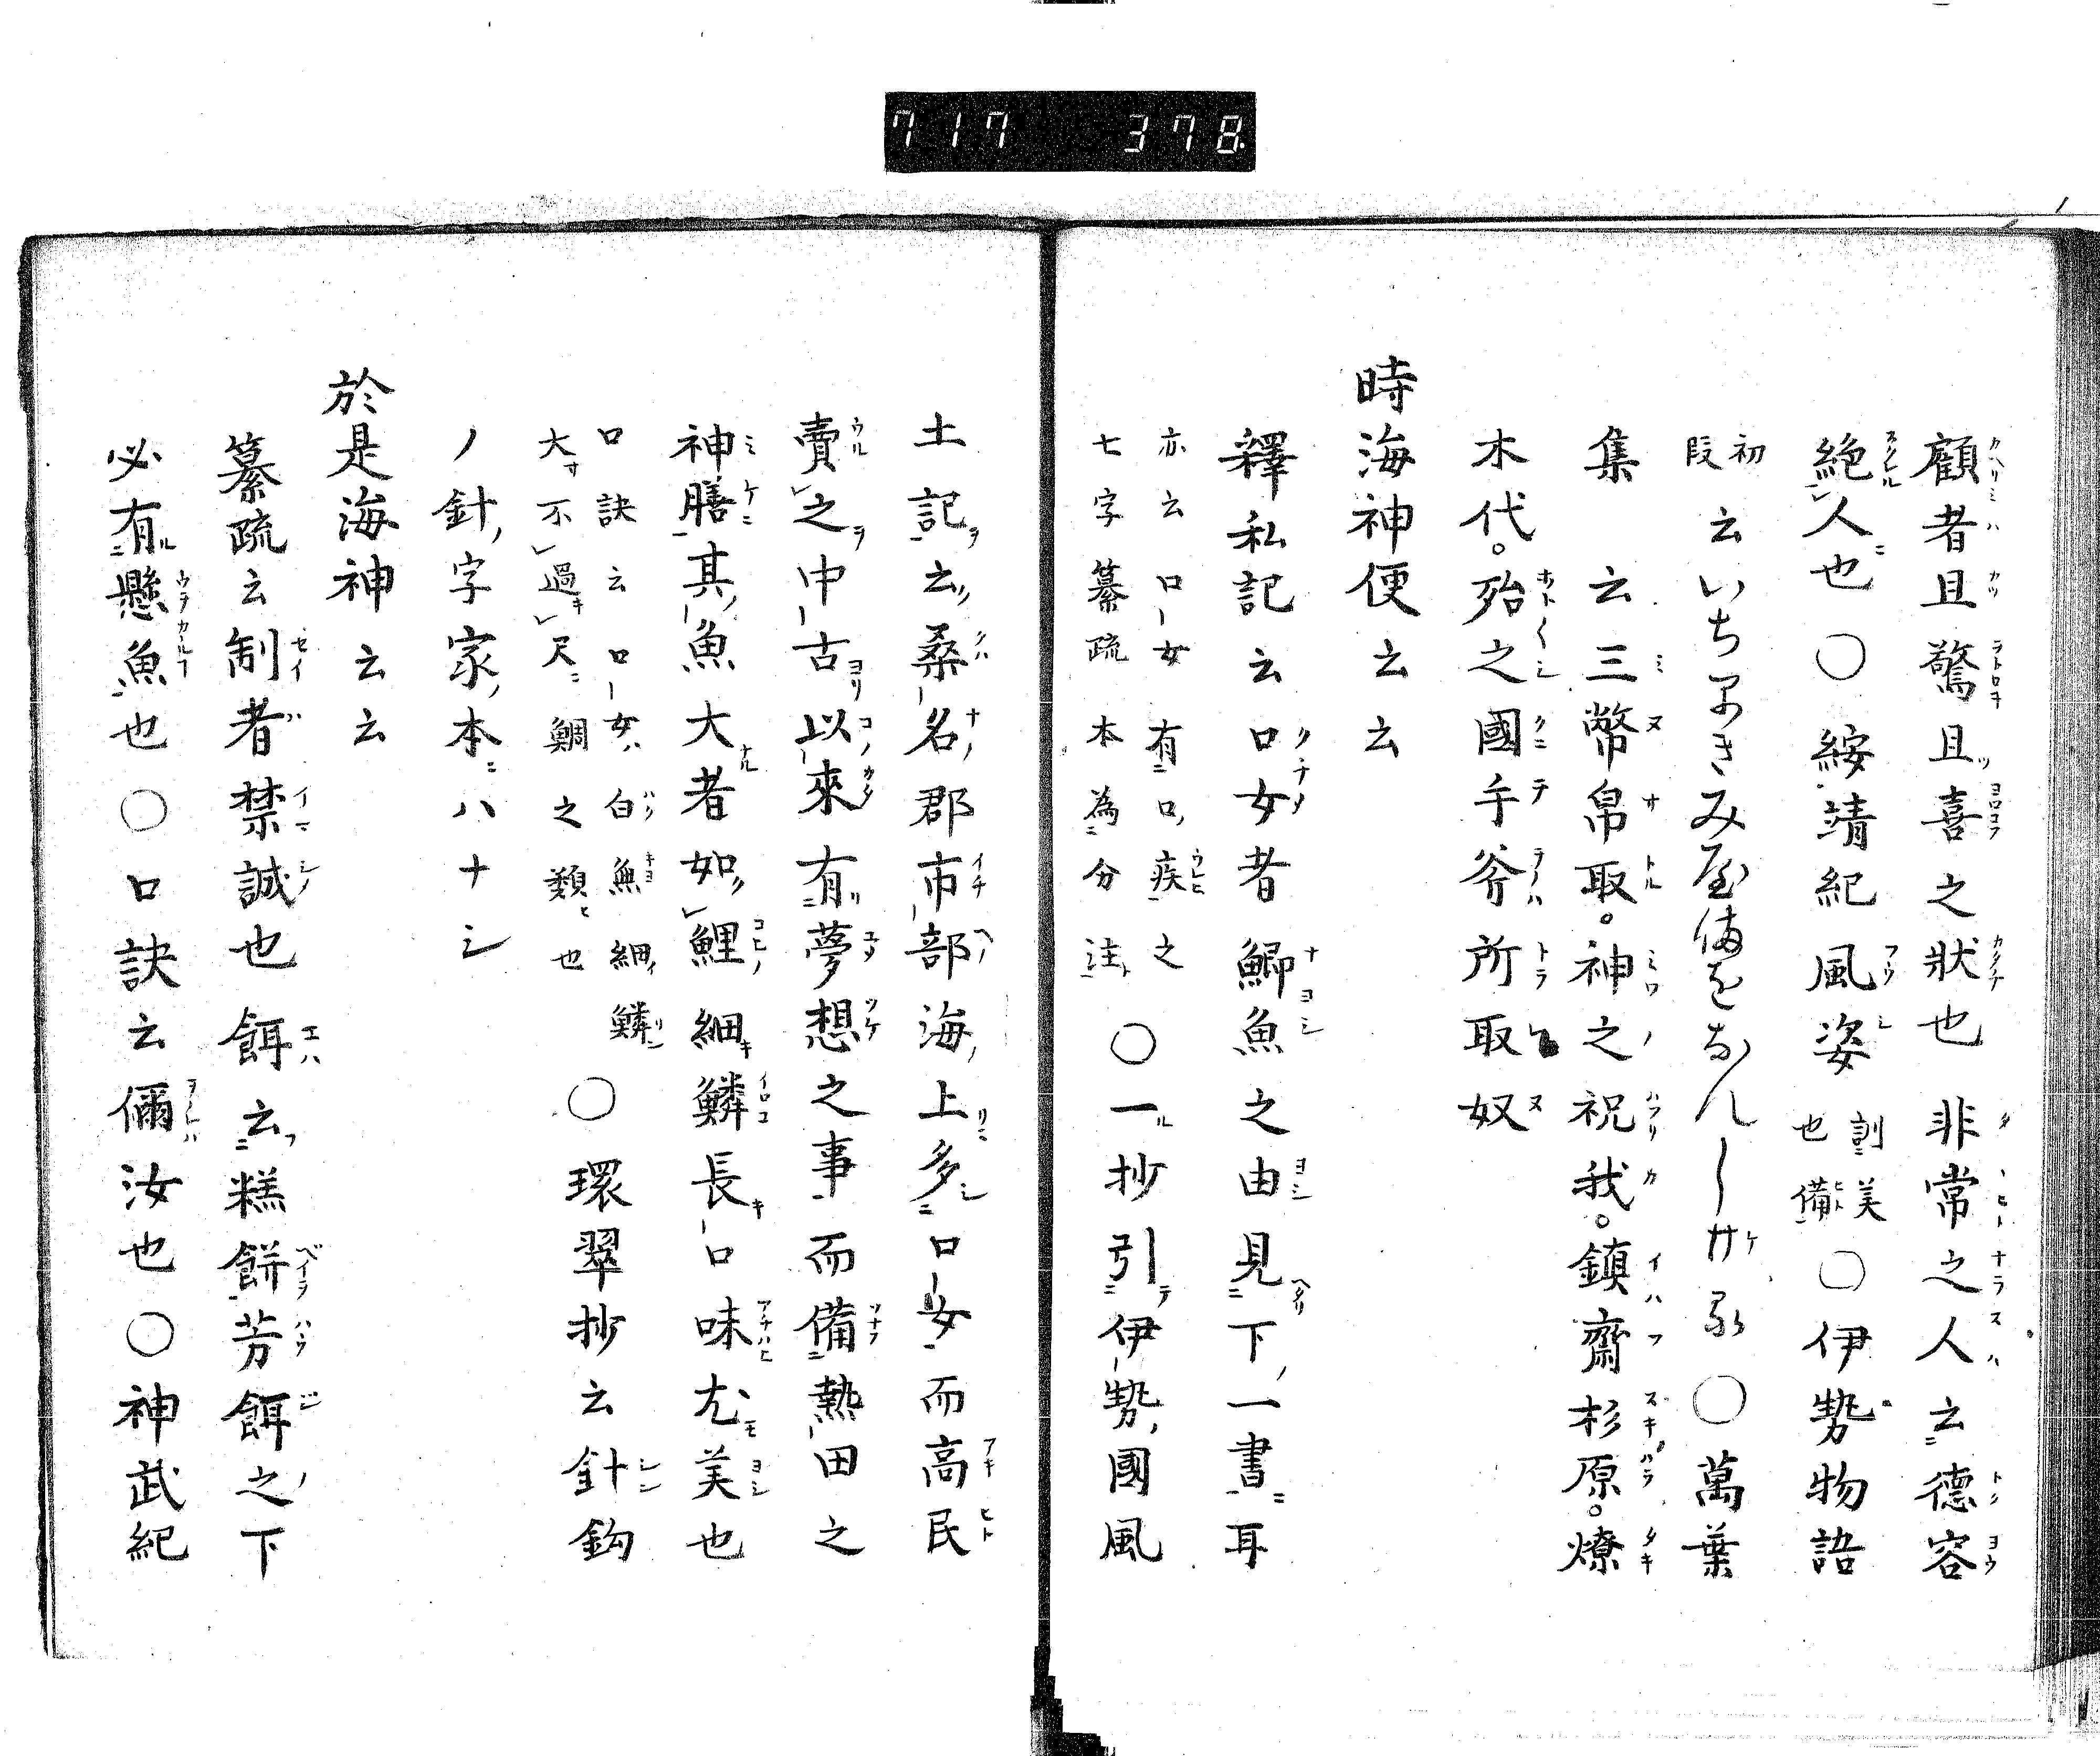 717 378
顧者且驚且喜之狀也非常之人云德容
絶人也○綏靖紀風姿訓美也備○伊勢物語
初段云いちはやきみやひをなんしける○萬葉
集云三幣帛取。神之祝我。鎮齋杉原。燎
木代。殆之國手斧所取奴
時海神便云云
釋私記云口女者鯔魚之由見下一書耳
亦云口女有口疾之
七字纂疏本為分注○一抄引伊勢國風
土記云桑名郡市部海上多口女而高民
賣之中古以來有夢想之事而備熱田之
神膳其魚大者如鯉細鱗長口味尤美也
口訣云口女白魚細鱗
大不過尺鯛之類也○環翠抄云針鈎
ノ針字家本ニハナシ
於是海神云云
纂疏云制者禁誡也餌云糕餅芳餌之下
必有懸魚也○口訣云儞汝也○神武紀